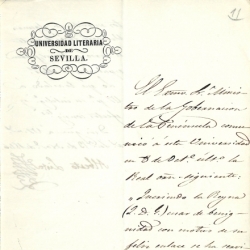 11
UNIVERSIDAD LITERARIA
DE
SEVILLA.
El Excmo. Sr. Minis
tro de la Gobernacion
de la Península comu
nicó a esta Universidad
en 3 de Oct.e ult.o la
Real orn. siguiente:
"Queriendo la Reyna
(Q.D.G.) usar de benig
nidad con motivo de su
feliz enlace se ha